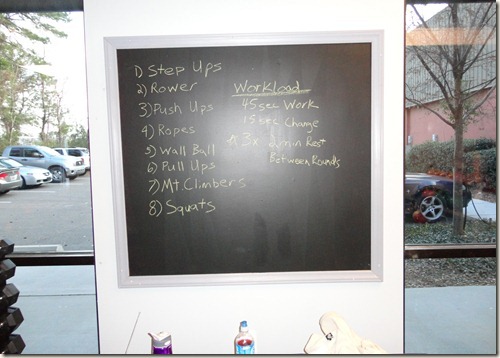 1) Step Ups
2) Rower
3) Push Ups
4) Ropes
5) Wall Ball
6) Pull Ups
7) Mt. Climbers
8) Squats
Workload
45 sec Work
15 sec Change
3x min Rest
Between Rounds